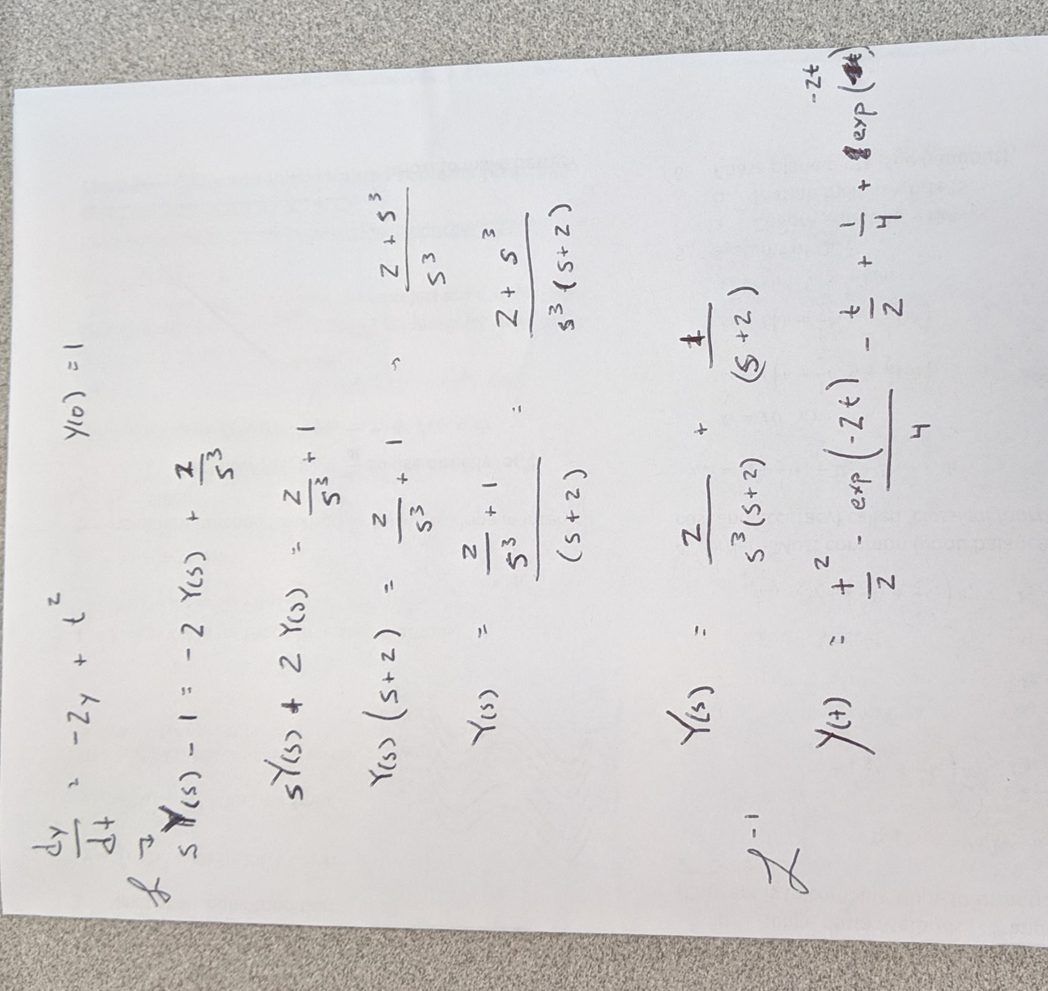 dy/dt = -2y + t² y(0) = 1
ℒ → sY(s) - 1 = -2 Y(s) + 2/s³
sY(s) + 2 Y(s) = 2/s³ + 1
Y(s) (s+2) = 2/s³ + 1 = (2 + s³)/s³
Y(s) = (2/s³ + 1)/(s+2) = (2 + s³)/(s³(s+2))
Y(s) = 2/(s³(s+2)) + 1/(s+2)
ℒ⁻¹ y(t) = t²/2 - exp(-2t)/4 - t/2 + 1/4 + exp(-2t)